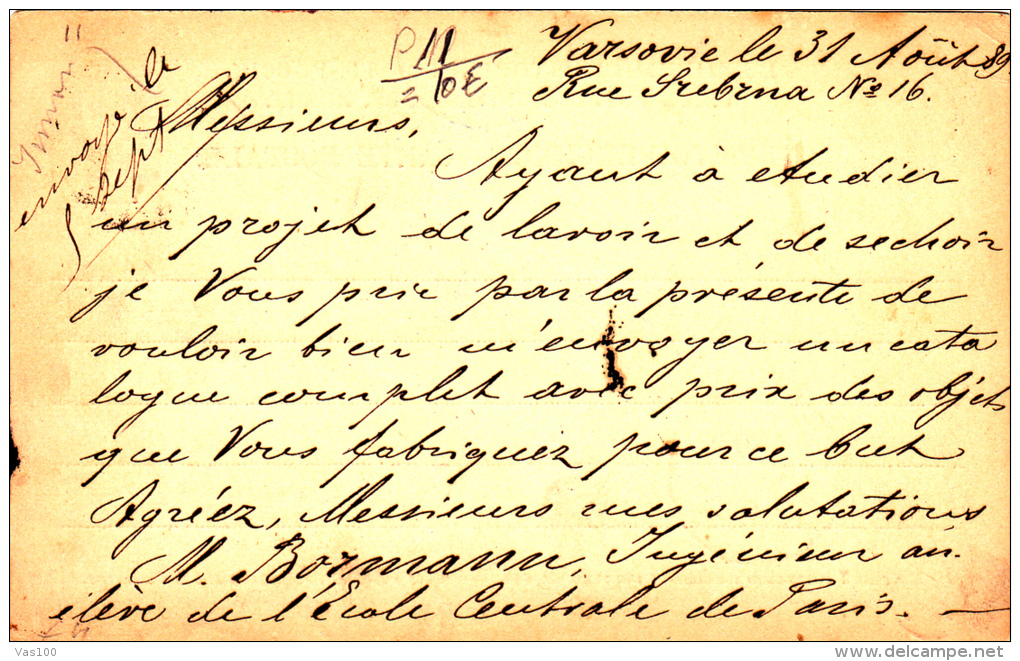 Varsovie le 31 Août 89.
Rue Srebrna No 16.
envoyé le
5 sept
Messieurs,
Ayant à etudier
un projet de lavoir et de sechoir
je Vous prie par la présente de
vouloir bien m'envoyer un cata
logue complet avec prix des objéts
que Vous fabriquez pour ce but
Agréez, Messieurs mes salutations
M. Bormann, Ingénieur an.
élève de l'École Centrale de Paris.
Vas100
delcampe.net